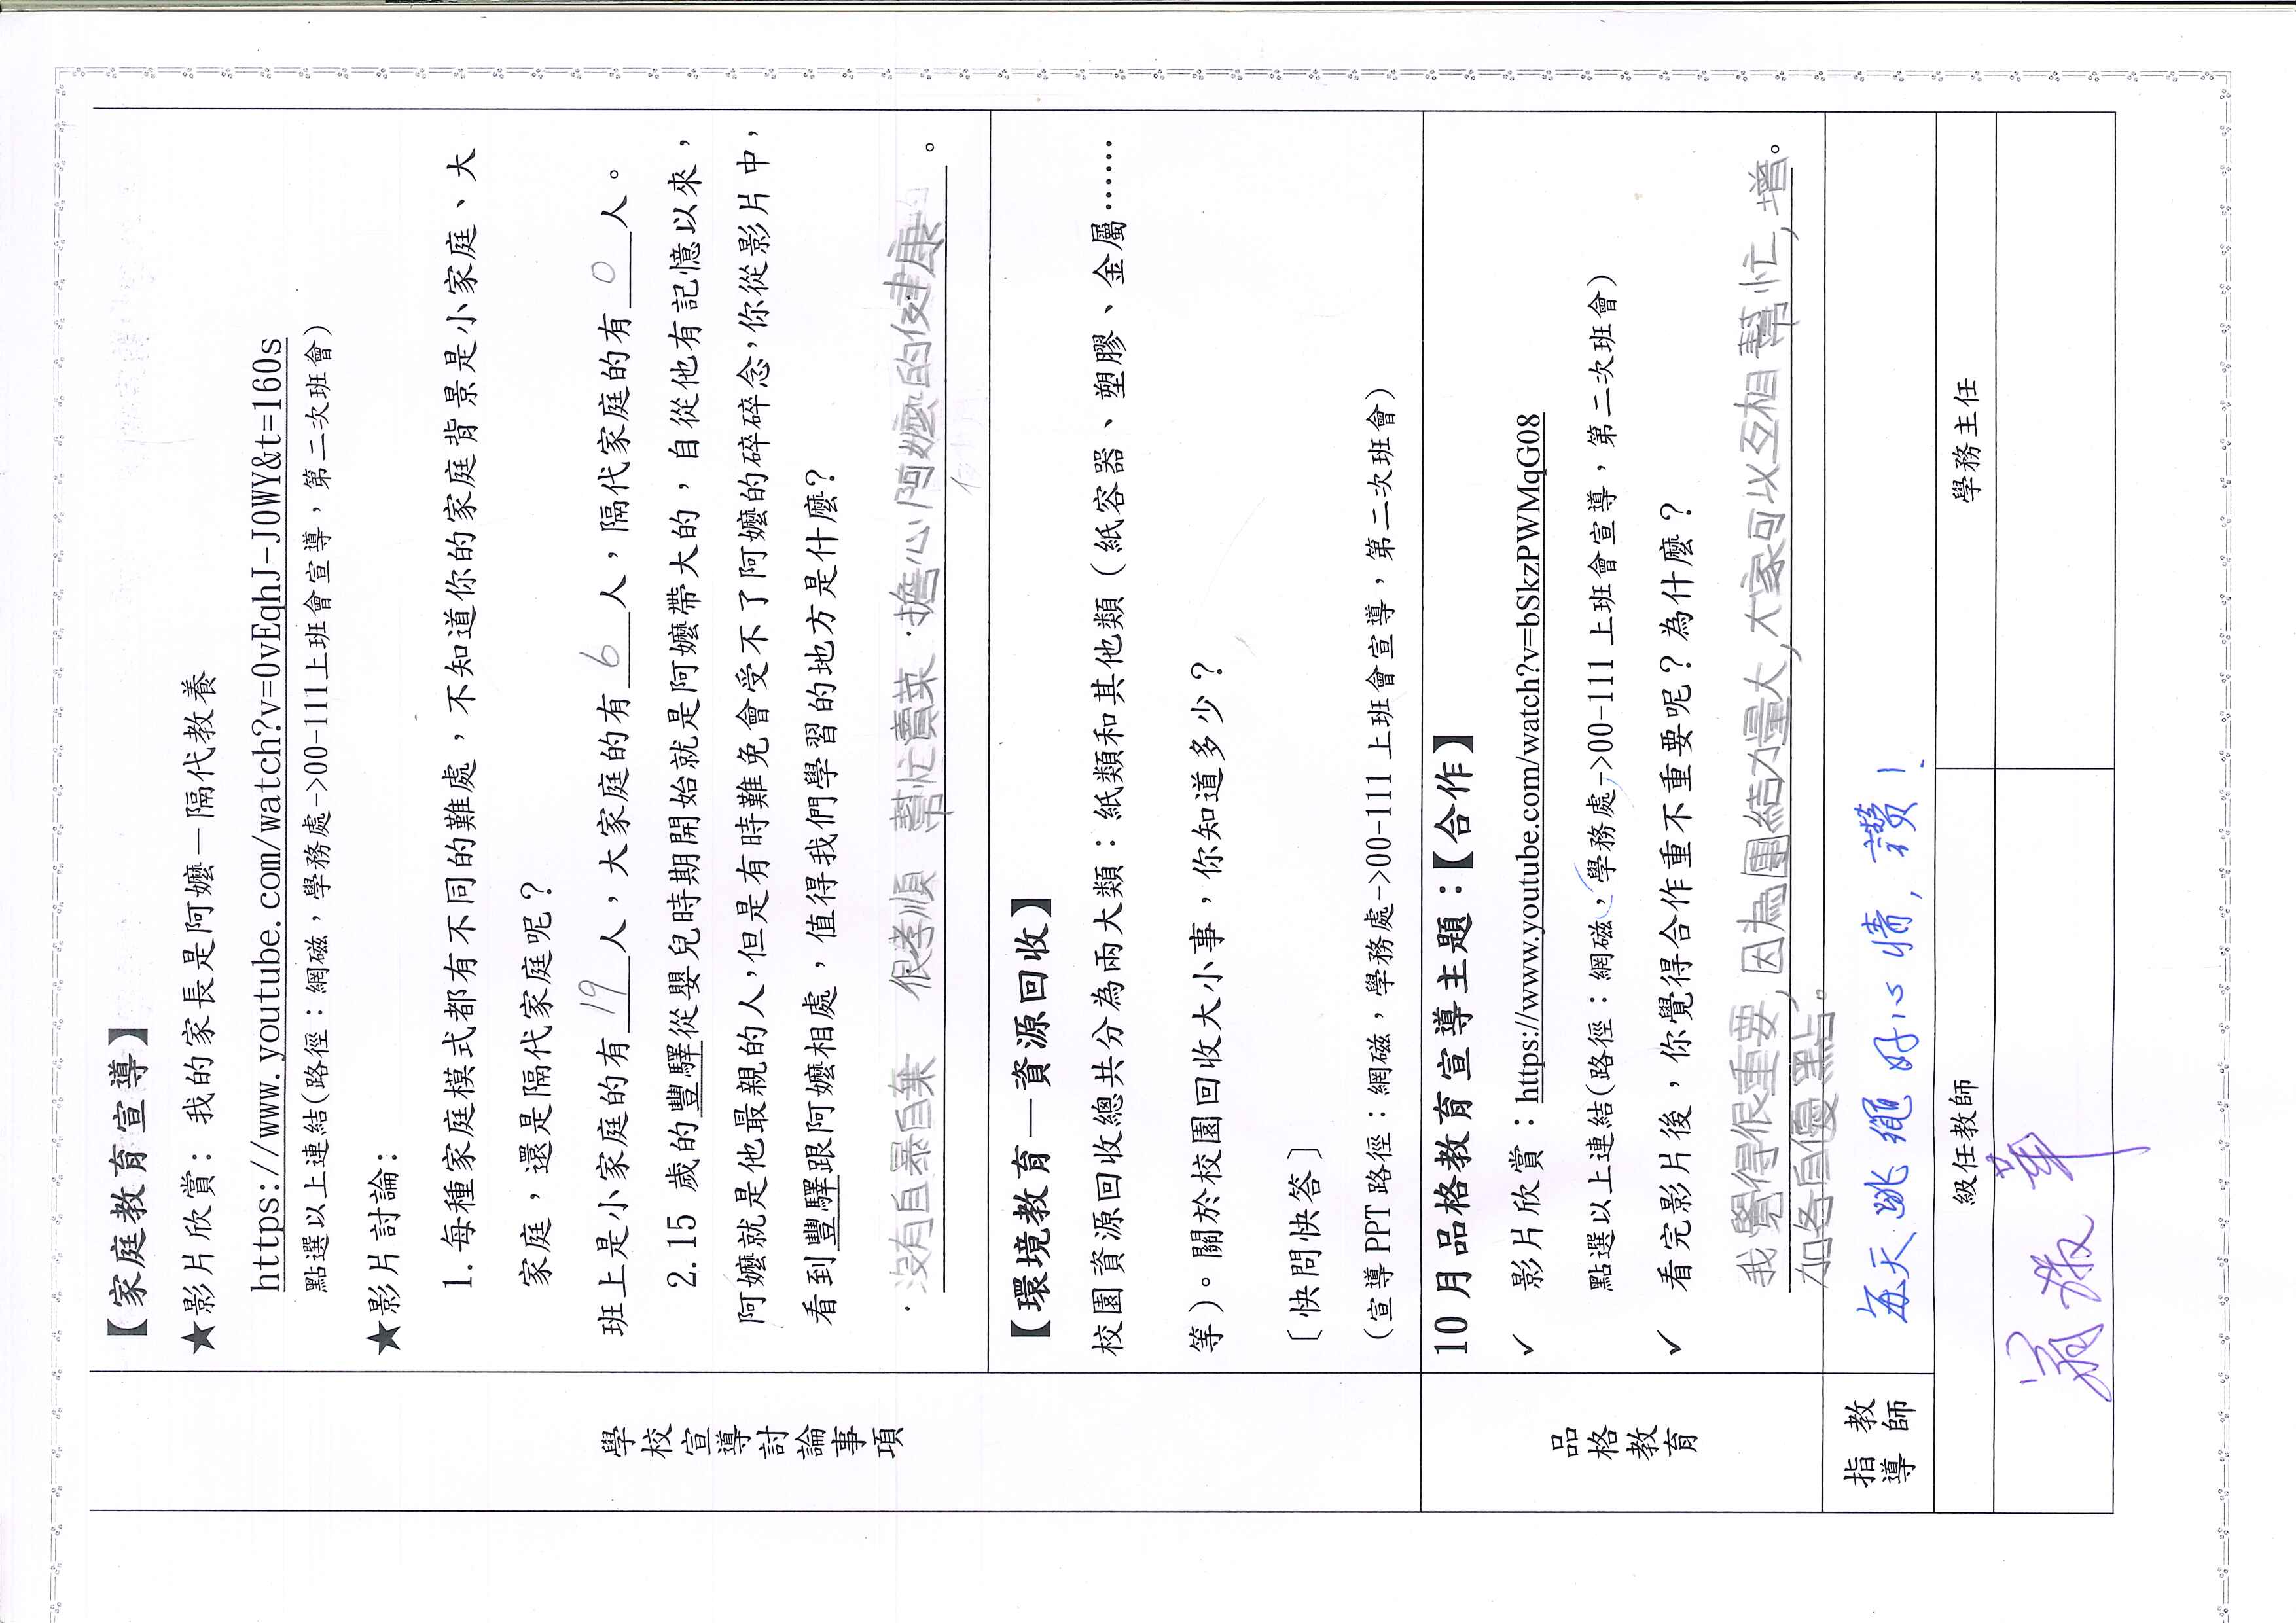 學校宣導討論事項
【家庭教育宣導】
★影片欣賞：我的家長是阿嬤－隔代教養
https://www.youtube.com/watch?v=0vEqhJ-J0WY&t=160s
點選以上連結(路徑：網磁，學務處->00-111上班會宣導，第二次班會)
★影片討論：
1.每種家庭模式都有不同的難處，不知道你的家庭背景是小家庭、大
家庭，還是隔代家庭呢？
班上是小家庭的有 19 人，大家庭的有 6 人，隔代家庭的有 0 人。
2.15 歲的豐驛從嬰兒時期開始就是阿嬤帶大的，自從他有記憶以來，
阿嬤就是他最親的人，但是有時難免會受不了阿嬤的碎碎念，你從影片中，
看到豐驛跟阿嬤相處，值得我們學習的地方是什麼？
·沒有自暴自棄 很孝順 幫忙賣菜·擔心阿嬤的健康。
【環境教育—資源回收】
校園資源回收總共分為兩大類：紙類和其他類（紙容器、塑膠、金屬……
等）。關於校園回收大小事，你知道多少？
〔快問快答〕
（宣導 PPT 路徑：網磁，學務處->00-111 上班會宣導，第二次班會）
品格教育
10 月品格教育宣導主題：【合作】
✓ 影片欣賞：https://www.youtube.com/watch?v=bSkzPWMqG08
點選以上連結(路徑：網磁，學務處->00-111 上班會宣導，第二次班會)
✓ 看完影片後，你覺得合作重不重要呢？為什麼？
我覺得很重要，因為團結力量大，大家可以互相幫忙，增。
加各自優點。
指導教師
每天跳繩好心情，讚！
級任教師
學務主任